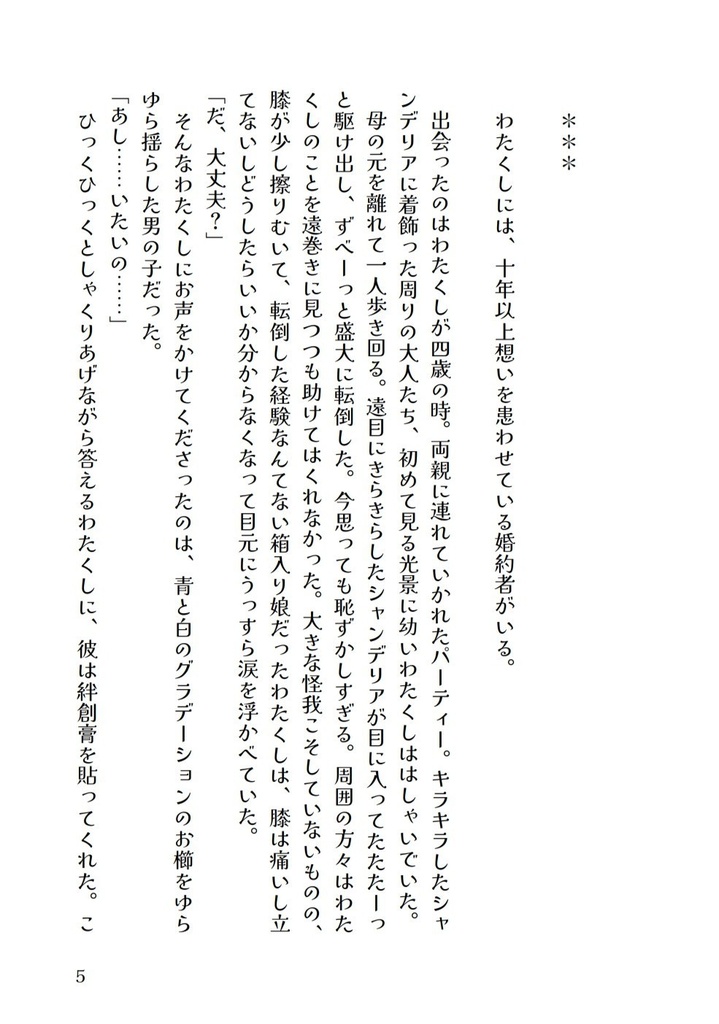 ＊＊＊
わたくしには、十年以上想いを患わせている婚約者がいる。
出会ったのはわたくしが四歳の時。両親に連れていかれたパーティー。キラキラしたシャ
ンデリアに着飾った周りの大人たち、初めて見る光景に幼いわたくしははしゃいでいた。
母の元を離れて一人歩き回る。遠目にきらきらしたシャンデリアが目に入ってたたたーっ
と駆け出し、ずべーっと盛大に転倒した。今思っても恥ずかしすぎる。周囲の方々はわた
くしのことを遠巻きに見つつも助けてはくれなかった。大きな怪我こそしていないものの、
膝が少し擦りむいて、転倒した経験なんてない箱入り娘だったわたくしは、膝は痛いし立
てないしどうしたらいいか分からなくなって目元にうっすら涙を浮かべていた。
「だ、大丈夫？」
そんなわたくしにお声をかけてくださったのは、青と白のグラデーションのお櫛をゆら
ゆら揺らした男の子だった。
「あし……いたいの……」
ひっくひっくとしゃくりあげながら答えるわたくしに、彼は絆創膏を貼ってくれた。こ
5